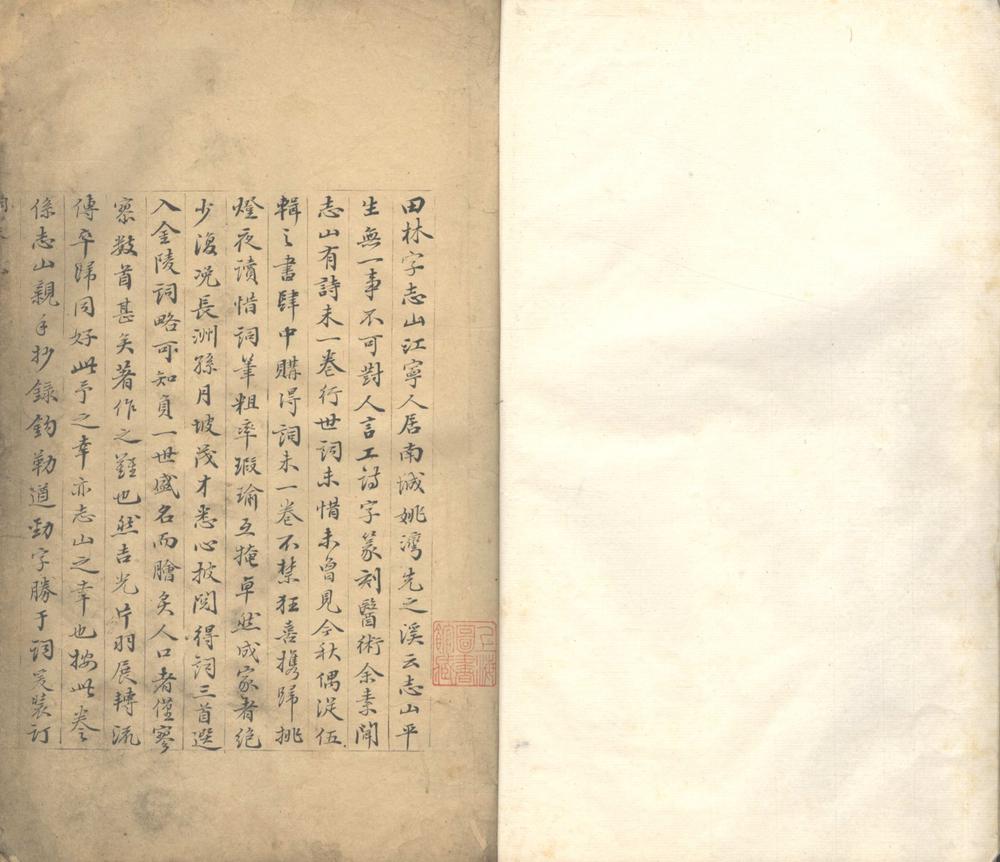 田林字志山江寧人居南城姚灣先之溪云志山平
生無一事不可對人言工詩字篆刻醫術余素聞
志山有詩未一卷行世詞未惜未曾見今秋偶從伍
輯之書肆中購得詞未一卷不禁狂喜携歸挑
燈夜讀惜詞筆粗率瑕瑜互掩卓然成家者絶
少復况長洲孫月坡茂才悉心披閱得詞三首選
入金陵詞略可知負一世盛名而膾炙人口者僅寥
寥數首甚矣著作之難也然吉光片羽展轉流
傳卒歸同好此予之幸亦志山之幸也按此卷
係志山親手抄録鈎勒遒勁字勝于詞爰裝訂
上海圖書館藏